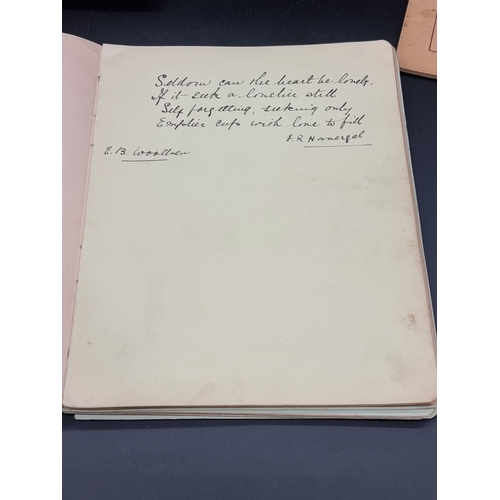 Seldom can the heart be lonely,
If it seek a lonelier still
Self forgetting, seeking only
Emptier cups with love to fill
F. R. Havergal
E. B.